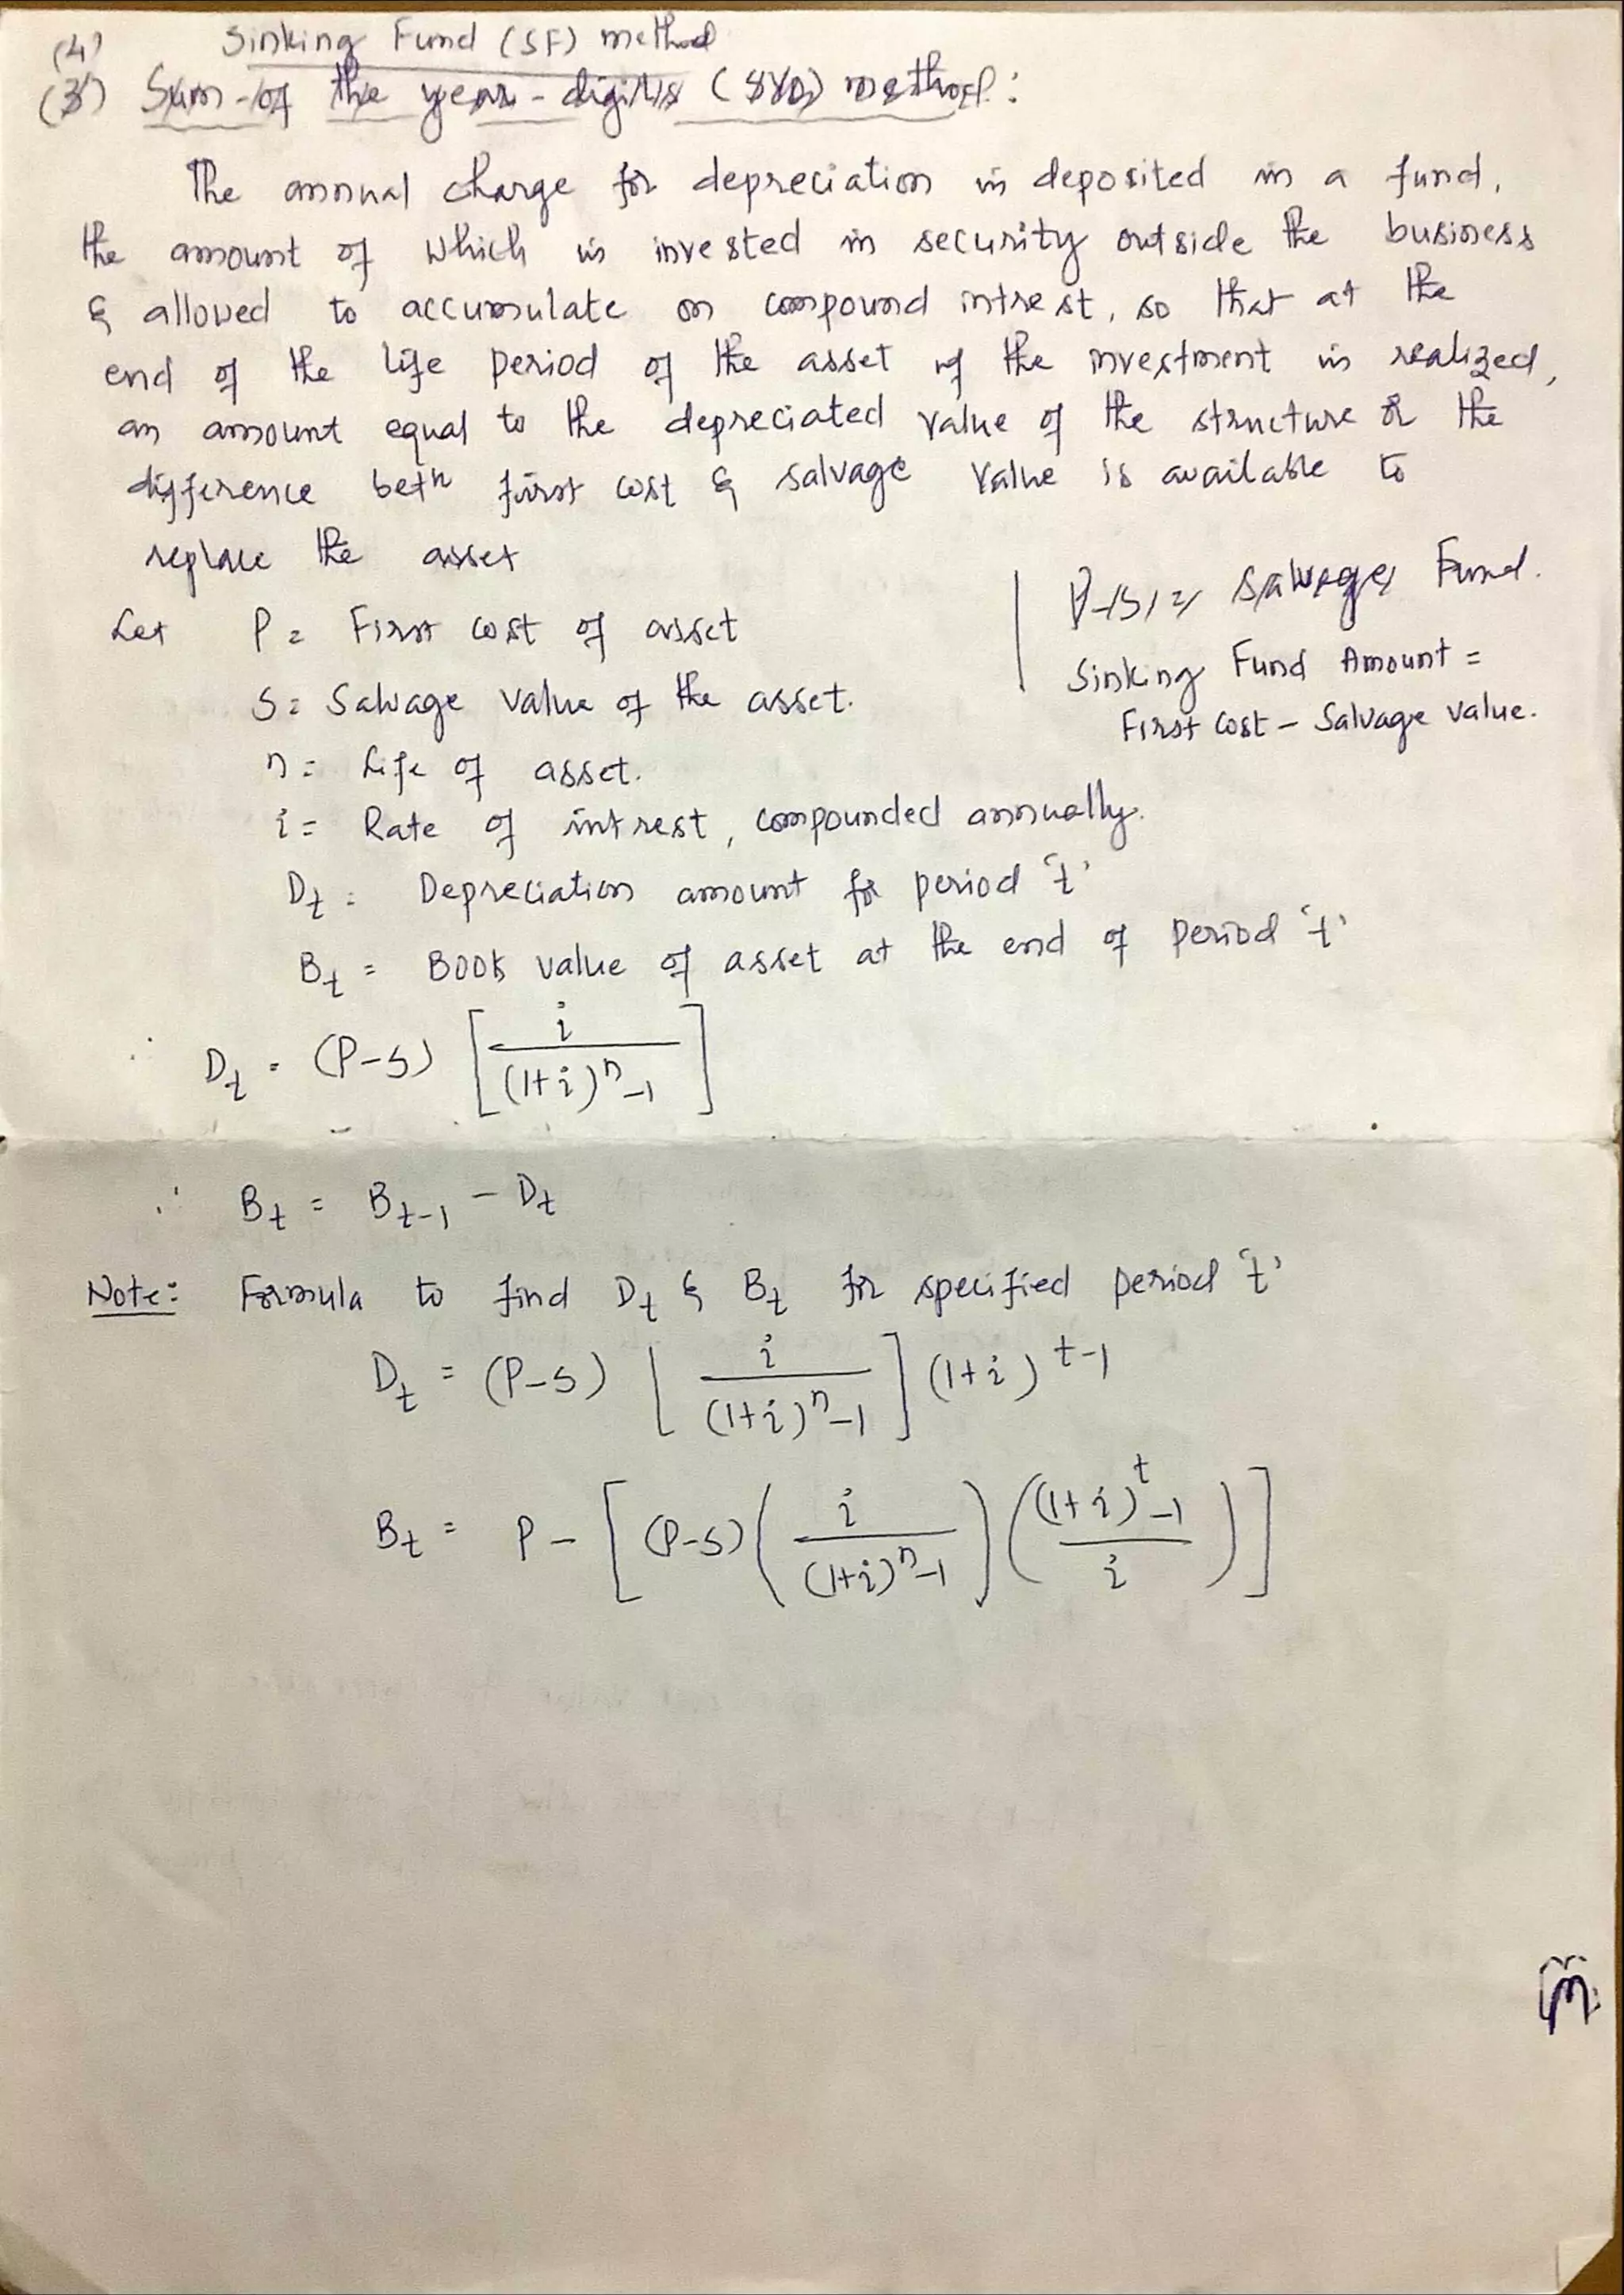 (4) Sinking Fund (SF) method
(3) Sum-of the year-digits (SYD) method:
The annual charge for depreciation is deposited in a fund,
the amount of which is invested in security outside the business
& allowed to accumulate on compound intrest, so that at the
end of the life period of the asset if the investment is realized,
an amount equal to the depreciated value of the structure or the
difference betn first cost & salvage value is available to
replace the asset
Let P = First cost of asset
S = Salvage value of the asset.
n = Life of asset.
i = Rate of intrest, compounded annually.
P-S = Salvage Fund.
Sinking Fund Amount =
First cost – Salvage value.
Dt = Depreciation amount for period 't'
Bt = Book value of asset at the end of period 't'
∴ Dt = (P-S) [i / ((1+i)^n -1)]
∴ Bt = Bt-1 - Dt
Note: Formula to find Dt & Bt for specified period 't'
Dt = (P-S) [i / ((1+i)^n -1)] (1+i)^t-1
Bt = P - [(P-S) (i / ((1+i)^n -1)) (((1+i)^t -1) / i)]